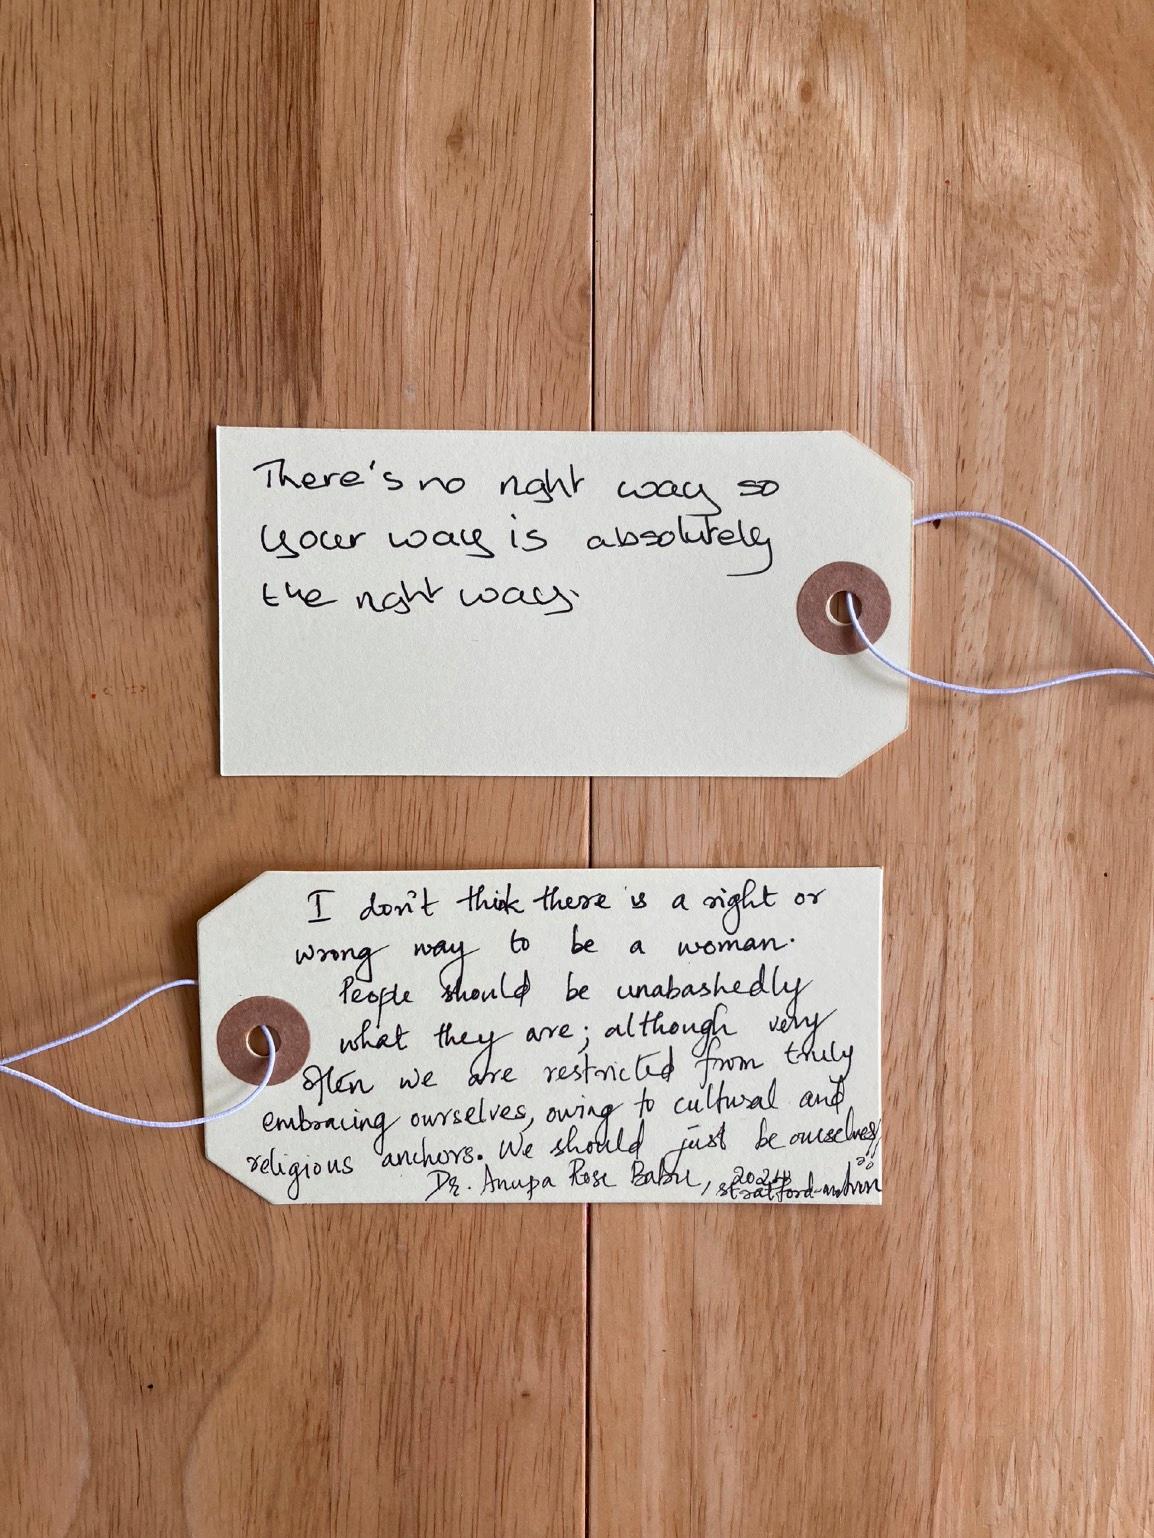 There's no right way so
your way is absolutely
the right way.
I don't think there is a right or
wrong way to be a woman.
People should be unabashedly
what they are; although very
often we are restricted from truly
embracing ourselves, owing to cultural and
religious anchors. We should just be ourselves,
Dr. Anupa Rose Babu, 2024